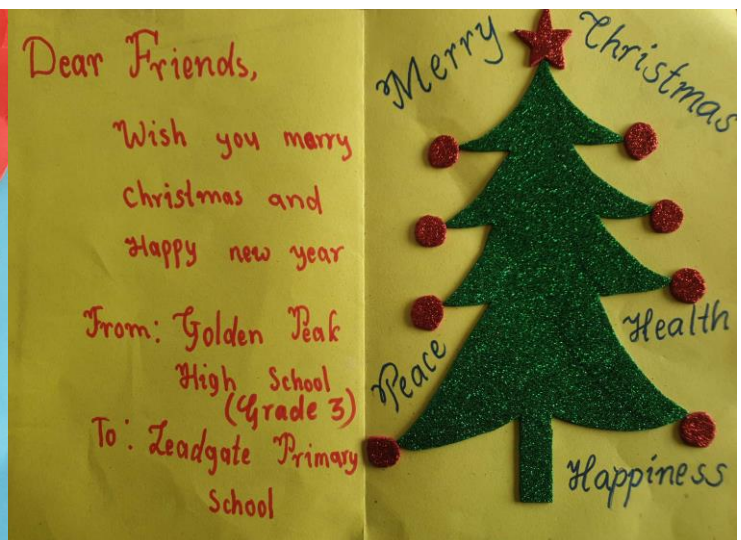 Dear Friends,
Wish you marry
christmas and
Happy new year
From: Golden Peak
High School
(Grade 3)
To: Leadgate Primary
School
Merry Christmas
Peace
Health
Happiness